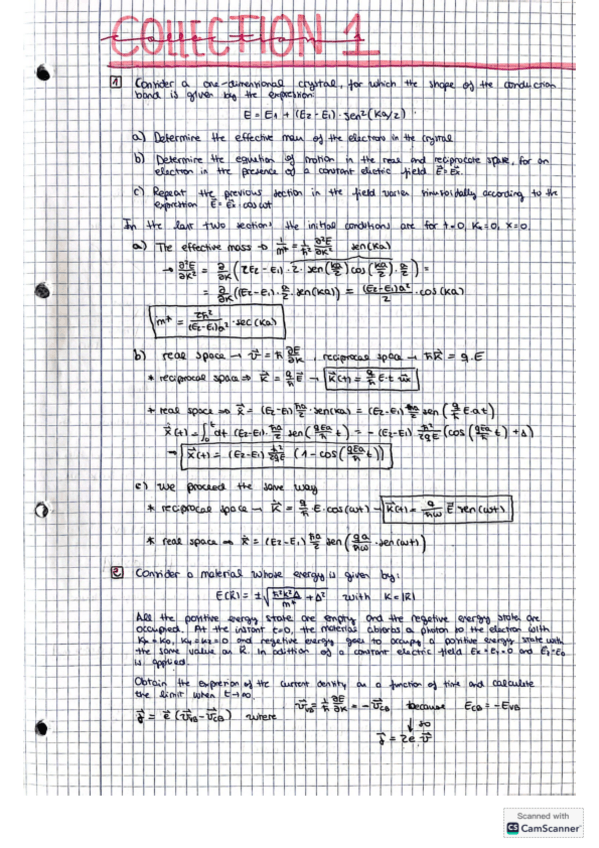 COLLECTION 1
1 Consider a one-dimensional crystal, for which the shape of the conduction
band is given by the expression:
E = E1 + (E2 - E1) · sen²(Ka/2)
a) Determine the effective mass of the electrons in the crystal
b) Determine the equation of motion in the real and reciprocate space, for an
electron in the presence of a constant electric field E⃗ = E⃗x.
c) Repeat the previous section in the field varies sinusoidally according to the
expression E⃗ = E⃗x · cos ωt
In the last two sections the initial conditions are for t=0, Kx=0, x=0.
a) The effective mass → 1/m* = 1/ħ² ∂²E/∂K² sen(Ka)
→ ∂²E/∂K² = ∂/∂K ((E2-E1) · 2 · sen(Ka/2) cos(Ka/2) · a/2) =
= ∂/∂K ((E2-E1) · a/2 · sen(Ka)) = (E2-E1)a²/2 · cos(Ka)
m* = 2ħ²/(E2-E1)a² · sec(Ka)
b) real space → v⃗ = ħ ∂E/∂K , reciprocal space → ħK⃗ = q·E
* reciprocal space ⇒ K⃗ = q/ħ E⃗ → K⃗(t) = q/ħ E·t u⃗x
* real space ⇒ ẋ = (E2-E1) ħa/2 · sen(Ka) = (E2-E1) ħa/2 sen(q/ħ E·a t)
x⃗(t) = ∫₀ᵗ dt (E2-E1) · ħa/2 sen(qEa/ħ t) = - (E2-E1) ħ²/2qE (cos(qEa/ħ t) + Δ)
→ x⃗(t) = (E2-E1) ħ²/2qE (1 - cos(qEa/ħ t))
c) We proceed the same way
* reciprocal space → K⃗ = q/ħ · E · cos(ωt) → K⃗(t) = q/ħω E⃗ sen(ωt)
* real space ⇒ ẋ = (E2-E1) ħa/2 sen(qa/ħω · sen(ωt))
2 Consider a material whose energy is given by:
E(K) = ± √(ħ²K²Δ/m* + Δ²) with K = |K⃗|
All the positive energy state are empty and the negative energy state are
occupied. At the instant t=0, the material absorbs a photon to the electron with
Kx = K0, Ky = Kz = 0 and negative energy goes to occupy a positive energy state with
the same value as K. In addition of a constant electric field Ex = Ez = 0 and Ey = E0
is applied.
Obtain the expression of the current density as a function of time and calculate
the limit when t→∞.
j⃗ = e⃗ (v⃗VB - v⃗CB) where v⃗VB = 1/ħ ∂E/∂K = - v⃗CB because ECB = -EVB
↓ so
j⃗ = 2e v⃗
Scanned with
CS CamScanner